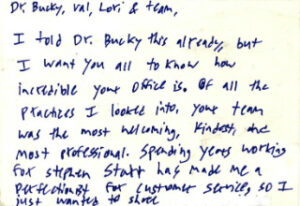 Dr. Bucky, Val, Lori & team,
I told Dr. Bucky this already, but
I want you all to know how
incredible your office is. Of all the
practices I looked into, your team
was the most welcoming, kindest, and
most professional. Spending years working
for Stephen Starr has made me a
perfectionist for customer service, so I
just wanted to share